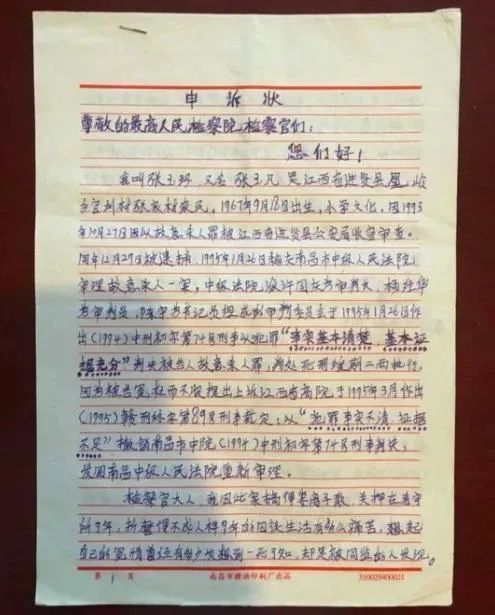 申诉状
尊敬的最高人民检察院检察官们：
您们好！
我叫张玉环 又名 张玉凡 是江西省进贤县凰岭
乡官圳村张家村农民，1967年9月18日出生，小学文化，因1993
年10月27日因以故意杀人罪被江西省进贤县公安局收容审查。
同年12月29日被逮捕，1995年1月26日被在南昌市中级人民法院
审理故意杀人一案，中级法院 审判长，杨经华
为审判员，陈 书记员组成 审判委员会于1995年1月26日作
出(1994)中刑初字第74号刑事以犯罪“事实基本清楚，基本证
据充分”判决被告人故意杀人罪，判处死刑缓期二两执行，
因为被告冤枉而不服提出上诉江西省高院于1995年3月作出
(1995)赣刑终字第89号刑事裁定：以“犯罪事实不清，证据
不足”撤销南昌市中院(1994)中刑初字第74号刑事判决，
发回南昌中级人民法院重新审理。
检察官大人，我因此案搞得妻离子散，关押在看守
所9年，折磨得不成人样9年的囚徒生活有多么痛苦，想起
自己的冤情曾经有多少次想到一死了知，却是被同监的人发现。
第 1 页 南昌市赣滨印刷厂出品 310029400021